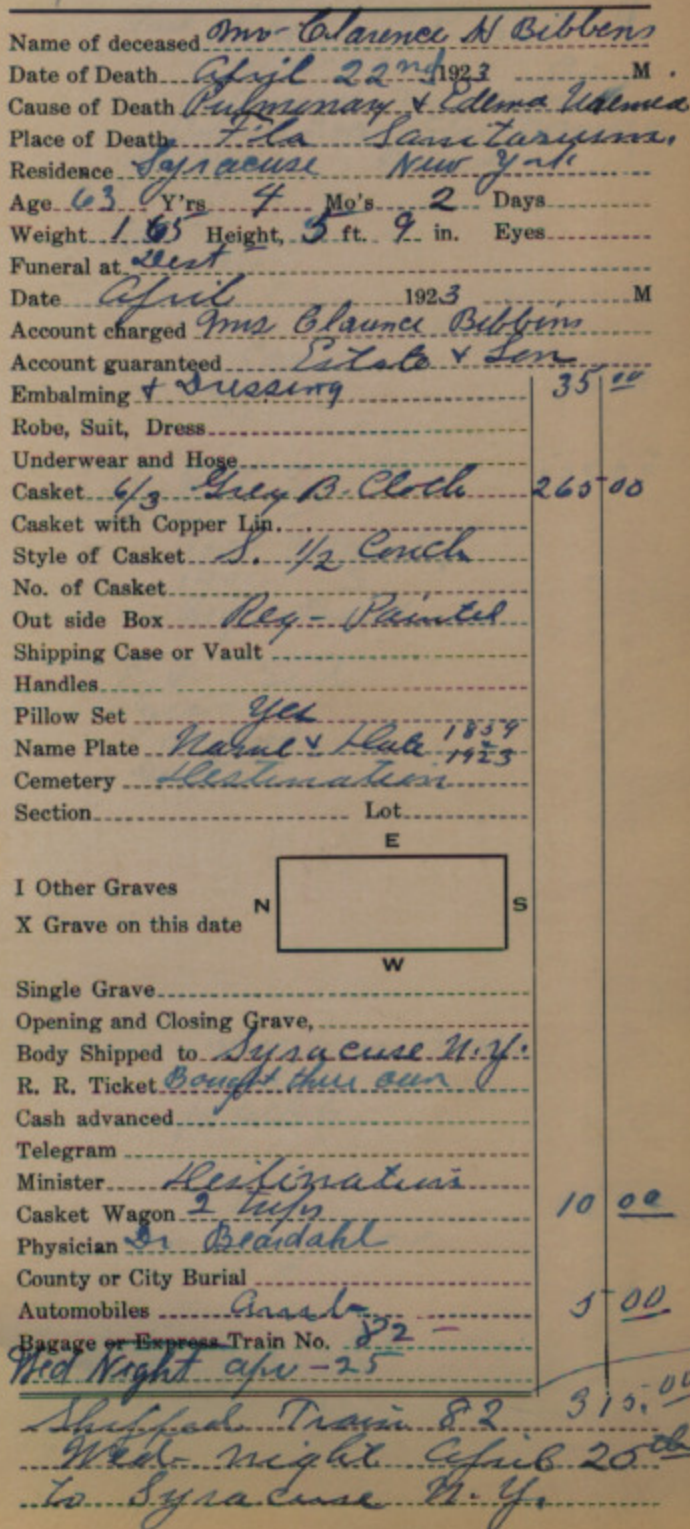 Name of deceased Mr- Clarence H Bibbens
Date of Death April 22nd 1923 M.
Cause of Death Pulmonary & Edema Uremia
Place of Death Fla Sanitarium.
Residence Syracuse New York
Age 63 Y'rs 4 Mo's 2 Days
Weight 165 Height, 5 ft. 9 in. Eyes
Funeral at Dest
Date April 1923 M
Account charged Mrs Clarence Bibbins
Account guaranteed Estate & Son
Embalming & Dressing 35 00
Robe, Suit, Dress
Underwear and Hose
Casket 6/3 Grey B. Cloth 265 00
Casket with Copper Lin.
Style of Casket S. 1/2 Couch
No. of Casket
Out side Box Reg - Painted
Shipping Case or Vault
Handles
Pillow Set Yes
Name Plate Name & Date 1859 1923
Cemetery Destination
Section Lot
E
I Other Graves
N S
X Grave on this date
W
Single Grave
Opening and Closing Grave,
Body Shipped to Syracuse N.Y.
R. R. Ticket Bought thir own
Cash advanced
Telegram
Minister Destination
Casket Wagon 2 trips 10 00
Physician Dr Beardahl
County or City Burial
Automobiles Amb- 5 00
Bagage or Express Train No. 82 -
Wed Night apr - 25
315.00
Shipped Train 82
Wed- night April 25th
to Syracuse N.Y.